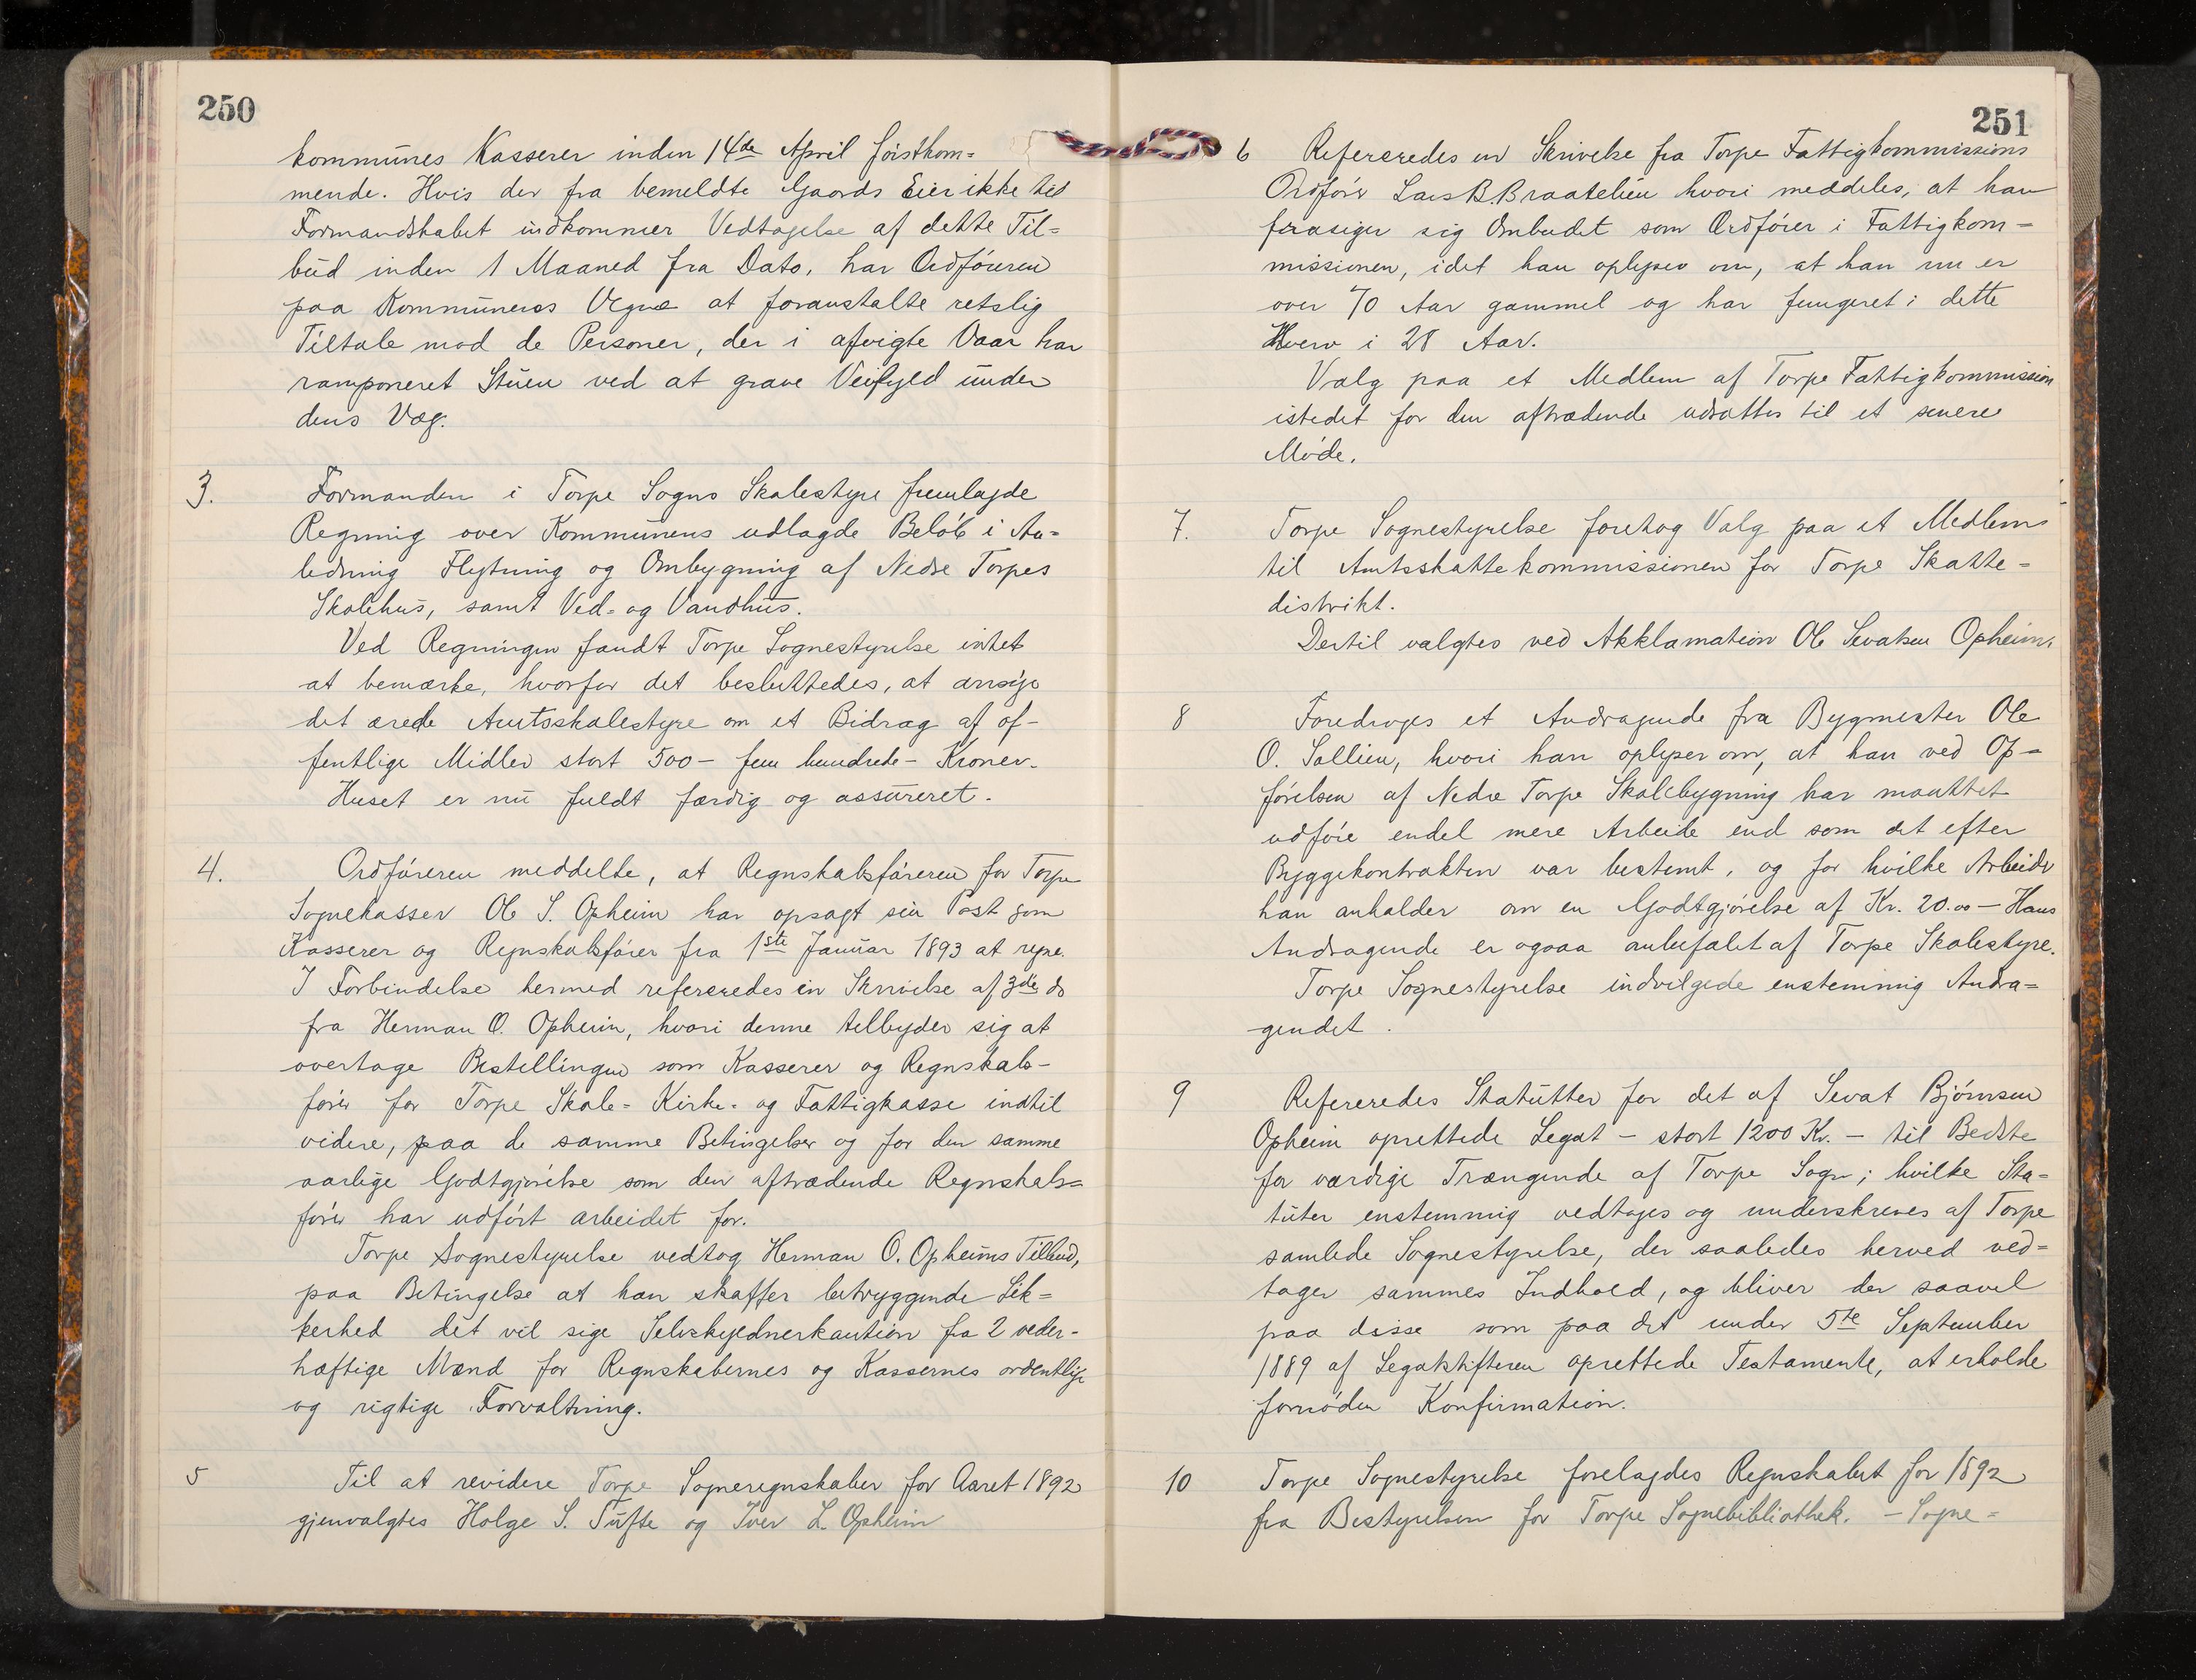 250
kommunes Kasserer inden 14de April førstkom=
mende. Hvis der fra bemeldte Gaards Eier ikke til
Formandskabet indkommer Vedtagelse af dette Til=
bud inden 1 Maaned fra Dato, har Ordføreren
paa Kommunens Vegne at foranstalte retslig
Tiltale mod de Personer, der i afvigte Vaar har
ramponeret Stuen ved at grave Veifyld under
dens Væg.
3. Formanden i Torpe Sogns Skolestyre fremlagde
Regning over Kommunens udlagde Beløb i An=
ledning Flytning og Ombygning af Nedre Torpes
Skolehus, samt Ved- og Vandhus.
Ved Regningen fandt Torpe Sognestyrelse intet
at bemærke, hvorfor det besluttedes, at ansøge
det ærede Amtsskolestyre om et Bidrag af of-
fentlige Midler stort 500 - fem hundrede - Kroner.
Huset er nu fuldt færdig og assureret.
4. Ordføreren meddelte, at Regnskabsføreren for Torpe
Sognekasser Ole S. Opheim har opsagt sin Post som
Kasserer og Regnskabsfører fra 1ste Januar 1893 at regne.
I Forbindelse hermed refereredes en Skrivelse af 3de ds
fra Herman O. Opheim, hvori denne tilbyder sig at
overtage Bestillingen som Kasserer og Regnskabs-
fører for Torpe Skole- Kirke- og Fattigkasse indtil
videre, paa de samme Betingelser og for den samme
aarlige Godtgjørelse som den aftrædende Regnskabs=
fører har udført arbeidet for.
Torpe Sognestyrelse vedtog Herman O. Opheims Tilbud,
paa Betingelse at han skaffer betryggende Sik=
kerhed det vil sige Selvskyldnerkaution fra 2 veder-
hæftige Mænd for Regnskabernes og Kassernes ordentlige
og rigtige Forvaltning.
5 Til at revidere Torpe Sogneregnskaber for Aaret 1892
gjenvalgtes Holge S. Tufte og Iver L. Opheim
251
6 Refereredes en Skrivelse fra Torpe Fattigkommissions
Ordfører Lars B. Braatelien hvori meddeles, at han
frasiger sig Ombudet som Ordfører i Fattigkom-
missionen, idet han oplyser om, at han nu er
over 70 Aar gammel og har fungeret i dette
Hverv i 28 Aar.
Valg paa et Medlem af Torpe Fattigkommission
istedet for den aftrædende udsattes til et senere
Møde.
7. Torpe Sognestyrelse foretog Valg paa et Medlem
til Amtsskattekommissionen for Torpe Skatte-
distrikt.
Dertil valgtes ved Akklamation Ole Sevatsen Opheim.
8 Foredroges et Andragende fra Bygmester Ole
O. Sollien, hvori han oplyser om, at han ved Op-
førelsen af Nedre Torpe Skolebygning har maattet
udføre endel mere Arbeide end som det efter
Byggekontrakten var bestemt, og for hvilke Arbeider
han anholder om en Godtgjørelse af Kr. 20.00 - Hans
Andragende er ogsaa anbefalet af Torpe Skolestyre.
Torpe Sognestyrelse indvilgede enstemmig Andra=
gendet.
9 Refereredes Statutter for det af Sevat Bjørnsen
Opheim oprettede Legat - stort 1200 Kr. - til Bedste
for værdige Trængende af Torpe Sogn; hvilke Sta=
tuter enstemmig vedtoges og underskreves af Torpe
samlede Sognestyrelse, der saaledes herved ved=
tager sammes Indhold, og bliver der saavel
paa disse som paa det under 5te September
1889 af Legatstifteren oprettede Testamente, at erholde
fornøden Konfirmation.
10 Torpe Sognestyrelse forelagdes Regnskabet for 1892
fra Bestyrelsen for Torpe Sognebibliothek. - Sogne=